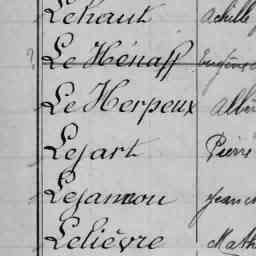 Lehaut Achille
? Le Hénaff Eugène
Le Herpeux Albe
Lejart Pierre
Lejamou Jean
Lelièvre Math